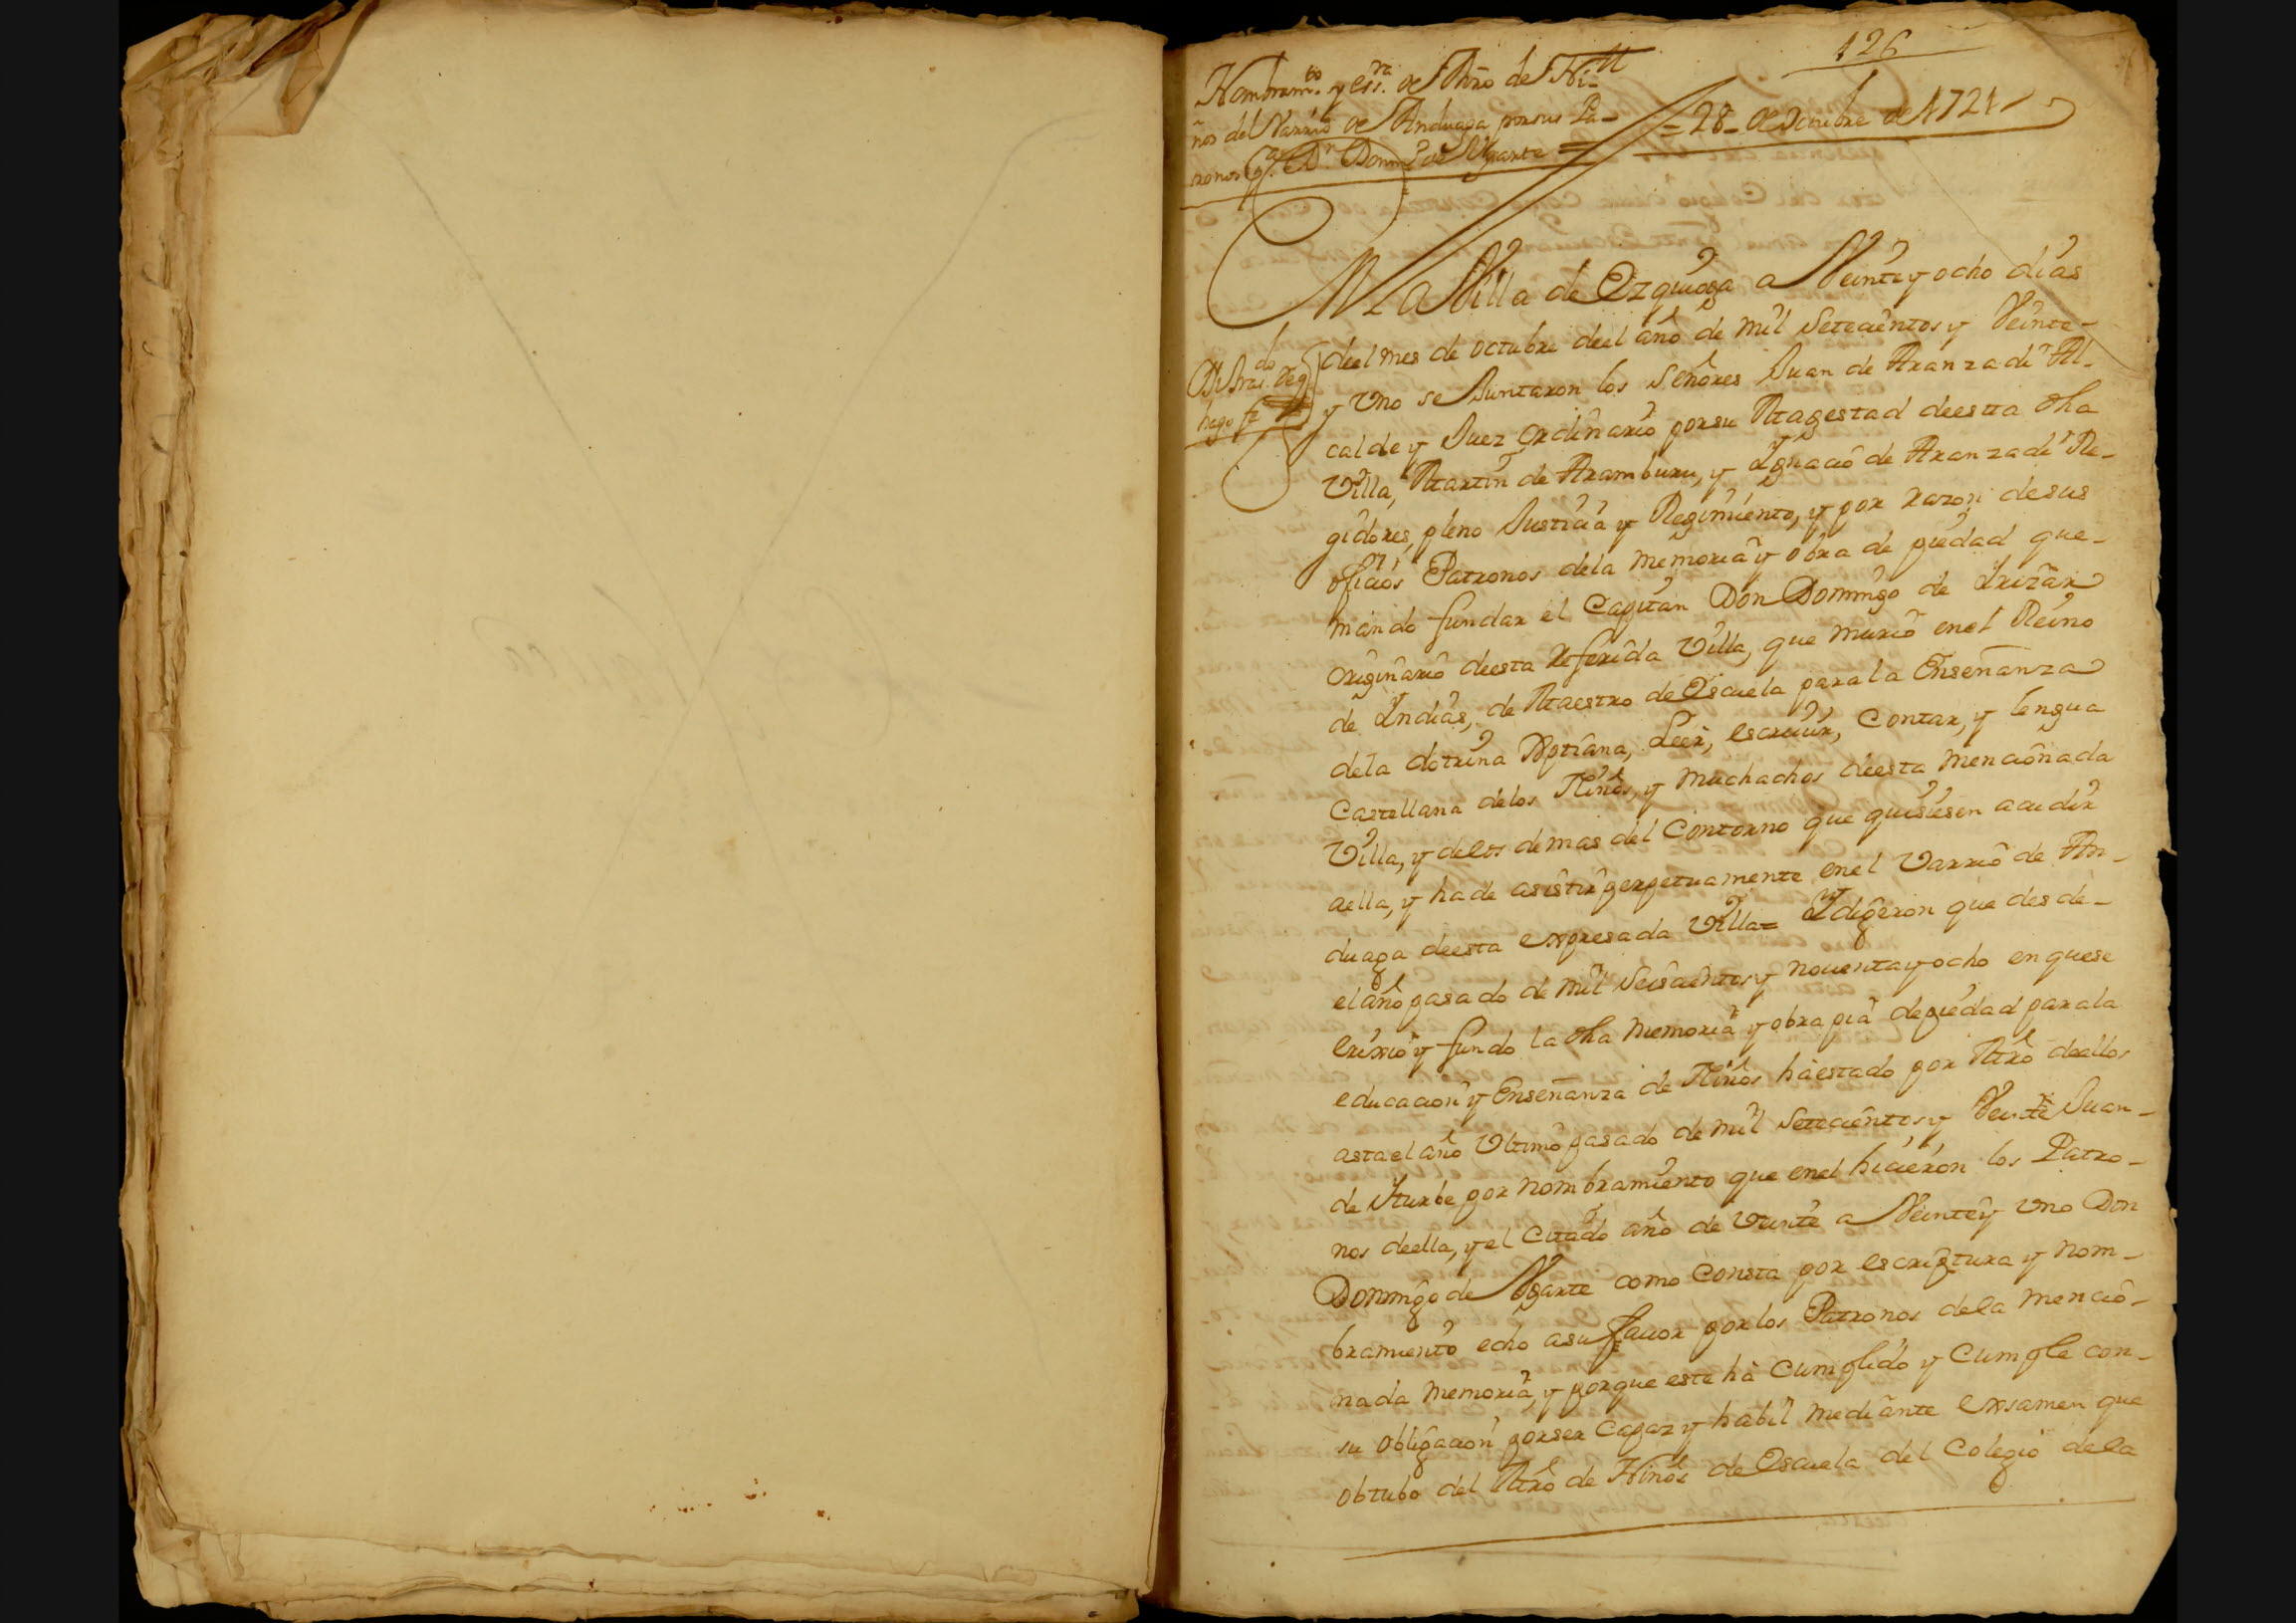 126
Nombramto. y essra. de Mro de Ni-
ños del Varrio de Anduaga por sus Pa-
tronos Ca. Dn. Domo. de Vgarte =
= 28 - de Octubre de 1721
En la Villa de Ezquioga a Veinte y ocho dias
del mes de octubre deel año de mil Setecientos y Veinte-
y Vno se Juntaron los Señores Juan de Aranzadi Al-
calde y Juez ordinario por su Magestad deesta dha
Villa, Martin de Aramburu, y Ygnacio de Aranzadi Re-
gidores, pleno Justicia y Regimiento, y por razon de sus
oficios Patronos dela memoria y obra de piedad que-
mando fundar el Capitan Don Domingo de Yrizar
originario deesta referida Villa, que murio en el Reino
de Yndias, de Maestro de Escuela para la Enseñanza
dela dotrina Xptiana, Leer, escriuir, Contar, y lengua
Castellana delos Niños, y muchachos deesta mencionada
Villa, y delos demas del Contorno que quisiesen acudir
aella, y hade asistir perpetuamente enel Varrio de An-
duaga deesta expresada Villa= Y digeron que desde-
el año pasado de mil Seiscientos y nouenta y ocho en quese
erixio y fundo la dha memoria y obra pia de piedad para la
educacion y Enseñanza de Niños há estado por Mro deellos
asta el año Vltimo pasado de mil Setecientos y Veinte Juan-
de Yturbe por nombramiento que enel hicieron los Patro-
nos deella, y el Citado año de Veinte a Veinte y Vno Don
Domingo de Vgarte como Consta por escriptura y nom-
bramiento echo asu fauor por los Patronos dela mencio-
nada memoria, y porque este há Cumplido y Cumple con-
su obligacion por ser Capaz y habil mediante exsamen que
obtubo del Mro de Niños de Escuela del Colegio dela